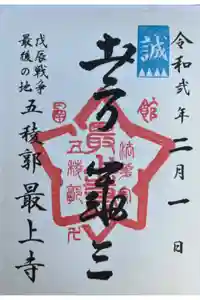 令和弐年二月一日
誠
土方歳三
戊辰戦争
最後の地
五稜郭 最上寺
最上寺
五稜郭